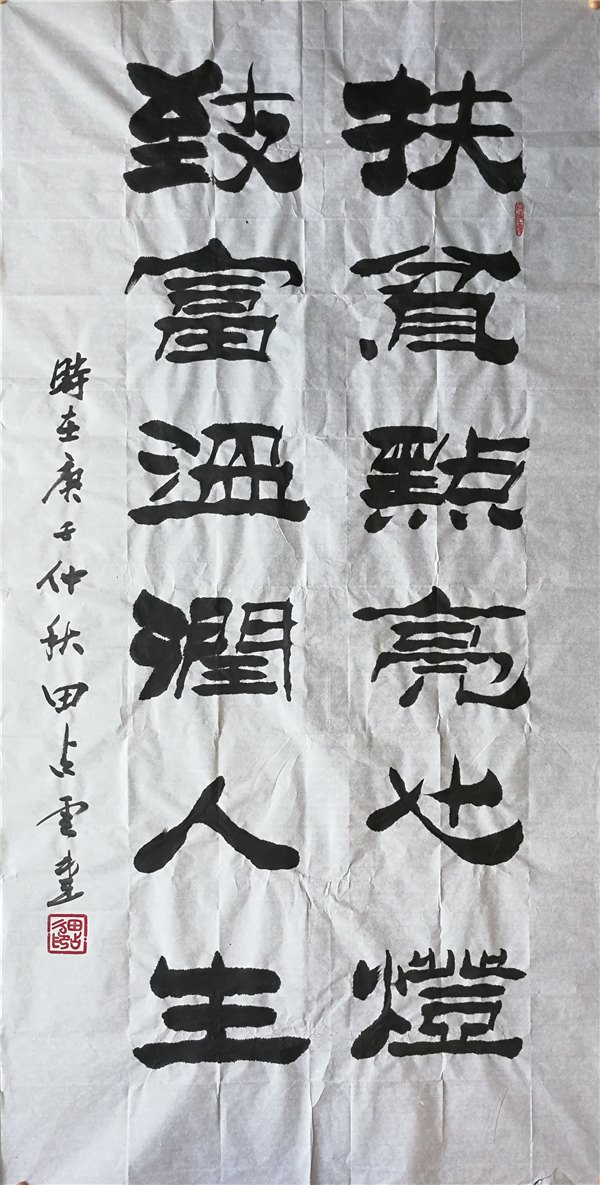 扶貧點亮心燈
致富溫潤人生
時在庚子仲秋田占雲書